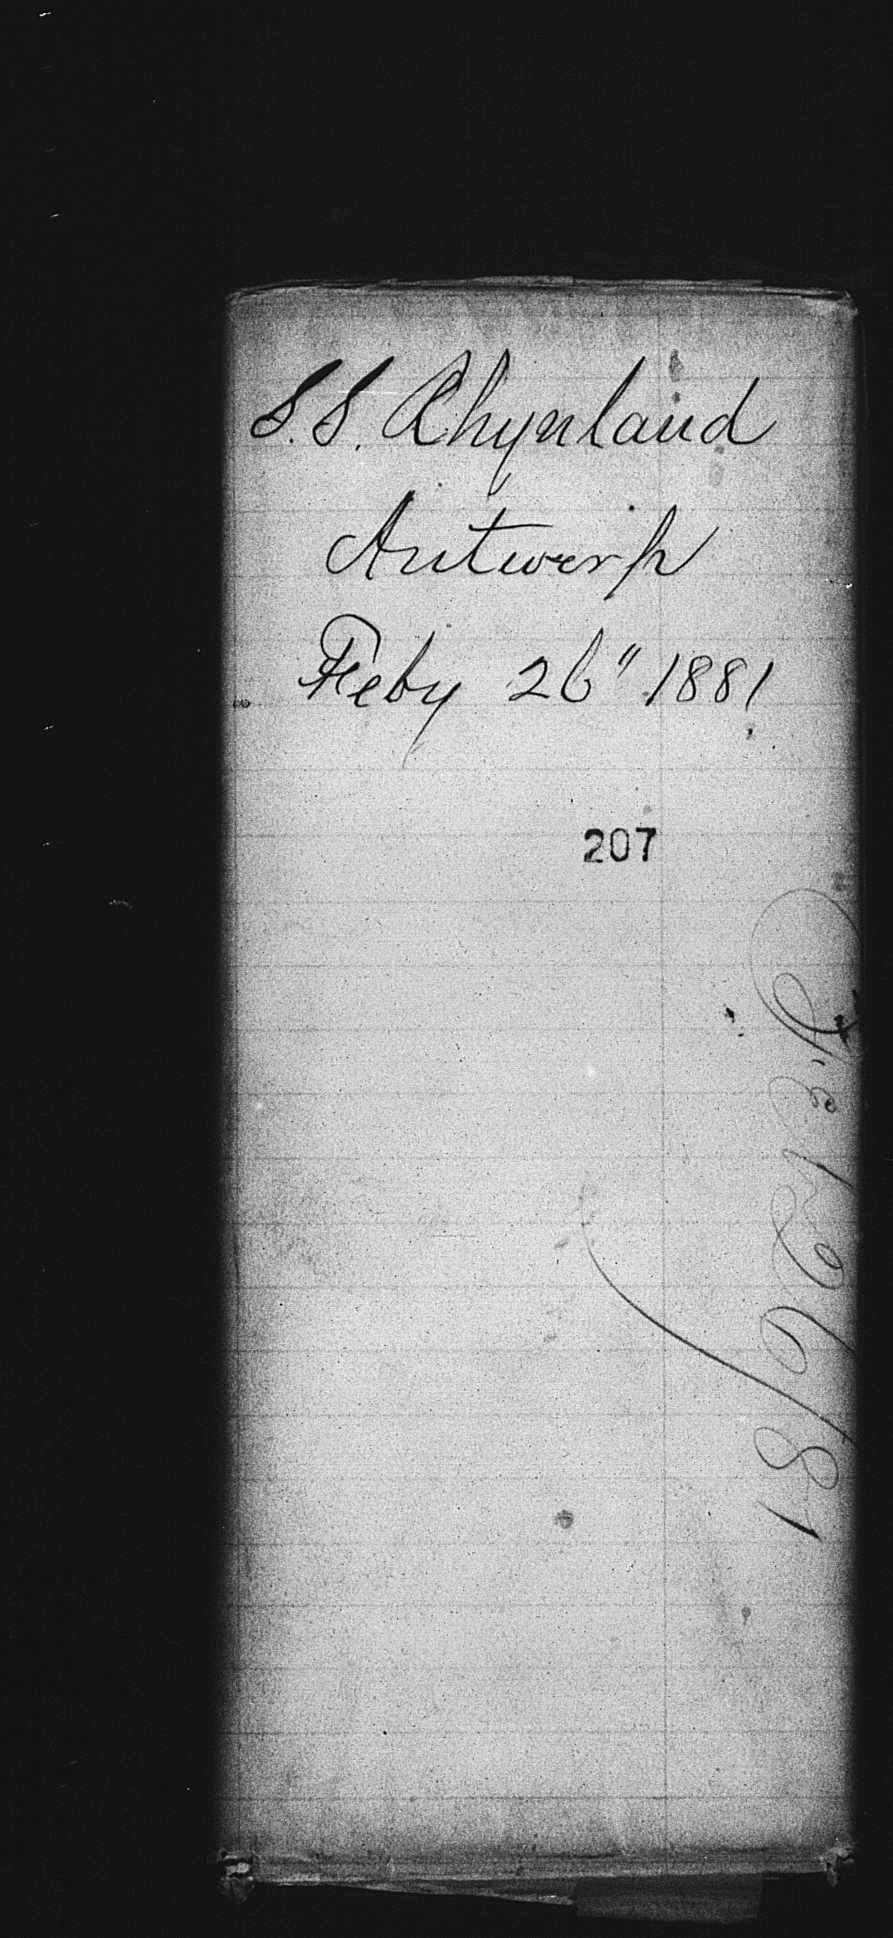 S.S. Rhynland
Antwerp
Feby 26" 1881
207
26/81